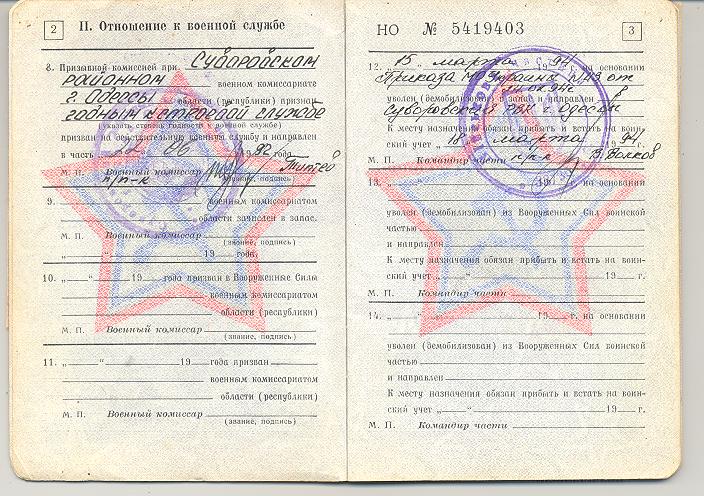 2
II. Отношение к военной службе
8. Призывной комиссией при Суворовском
районном военном комиссариате
г. Одессы области (республики) признан
годным к строевой службе
(указать степень годности к военной службе)
призван на действительную военную службу и направлен
в часть „22“ 06 1992 года
М. П. Военный комиссар
п/п-к
(звание, подпись)
9. военным комиссариатом
области зачислен в запас.
М. П. Военный комиссар
(звание, подпись)
„ “ 19 года.
10. „ “ 19 года призван в Вооруженные Силы
военным комиссариатом
области (республики)
М. П. Военный комиссар
(звание, подпись)
11. „ “ 19 года призван
военным комиссариатом
области (республики)
М. П. Военный комиссар
(звание, подпись)
НО № 5419403
3
12. „15“ марта 1994 г. на основании
Приказа МО Украины №13 от
уволен (демобилизован) в запас и направлен в
Суворовский РВК г. Одессы
К месту назначения обязан прибыть и встать на воин-
ский учет „18“ марта 1994 г.
М. П. Командир части В. Волков
13. „ “ 19 г. на основании
уволен (демобилизован) из Вооруженных Сил воинской
частью
и направлен
К месту назначения обязан прибыть и встать на воин-
ский учет „ “ 19 г.
М. П. Командир части
14. „ “ 19 г. на основании
уволен (демобилизован) из Вооруженных Сил воинской
частью
и направлен
К месту назначения обязан прибыть и встать на воин-
ский учет „ “ 19 г.
М. П. Командир части